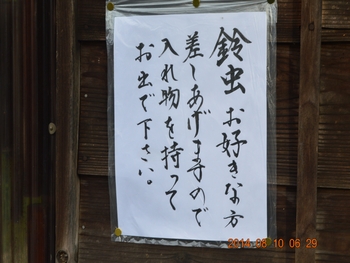 鈴虫お好きな方
差しあげますので
入れ物を持って
お出で下さい。
2014.08.10 06.29